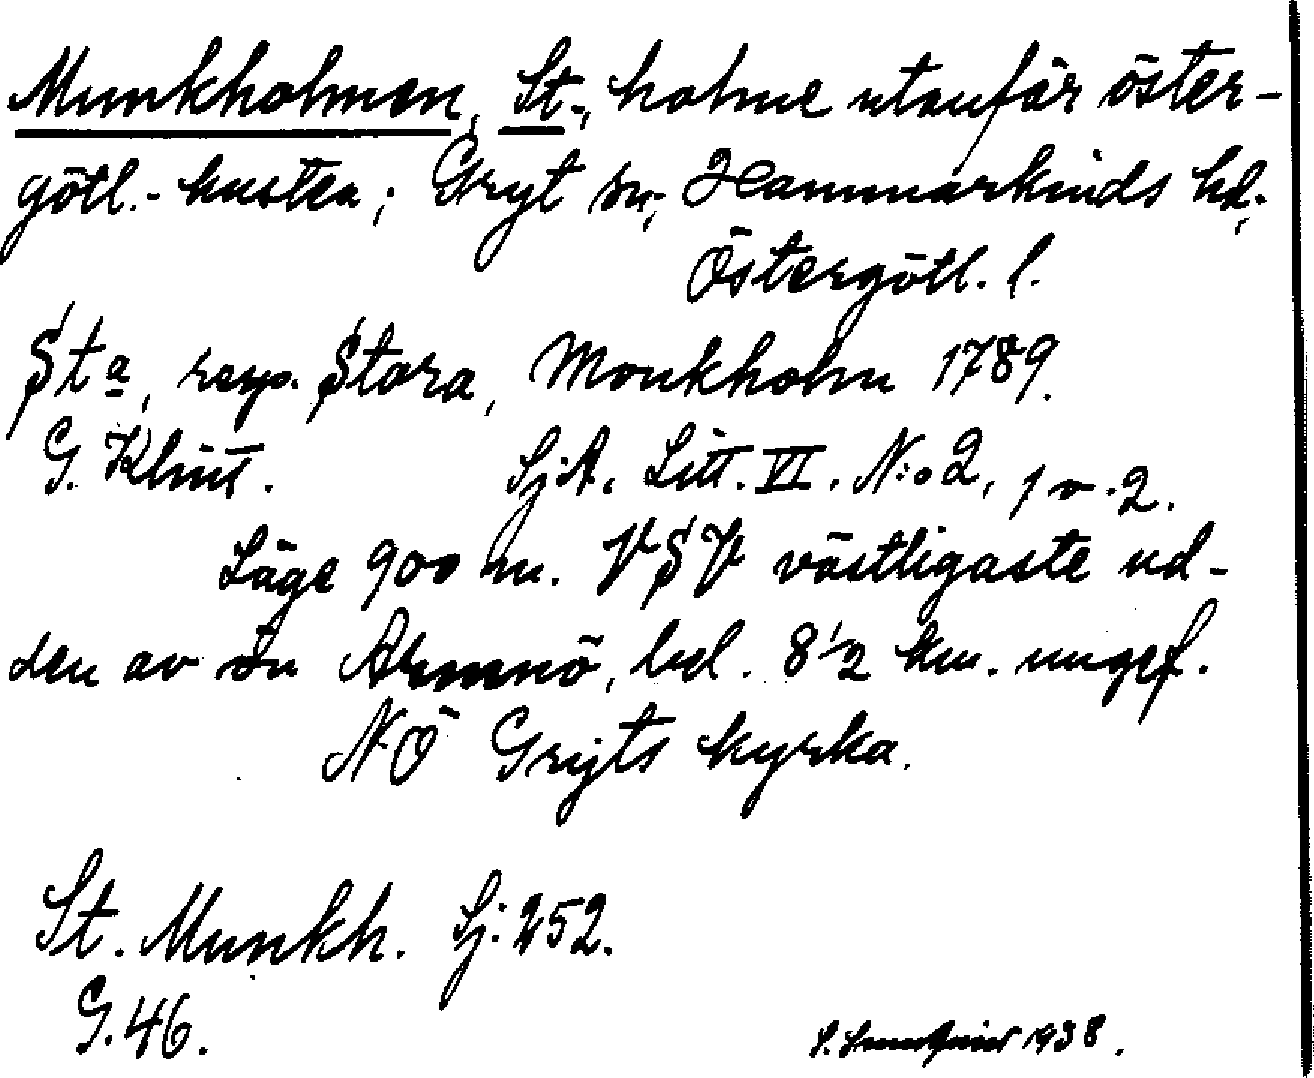 Munkholmen, St., holme utanför öster-
götl.-kusten; Gryt sn, Hammarkinds hd,
Östergötl. l.
Sta, resp. Stora, Monkholm 1789.
G. Klint. SjA. Litt. VI. N:o 2, 1 o. 2.
Läge 900 m. VSV västligaste ud-
den av ön Armnö, bel. 8 1/2 km. ungef.
NÖ Gryts kyrka.
St. Munkh. Sj. 252.
G. 46.
1938.